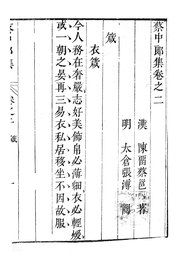 蔡中郎集卷之二
漢 陳留蔡邕 著
明 太倉張溥 閱
箴
衣箴
今人務在奢嚴志好美飾帛必薄細衣必輕煖
或一朝之晏再三易衣私居移坐不因故服